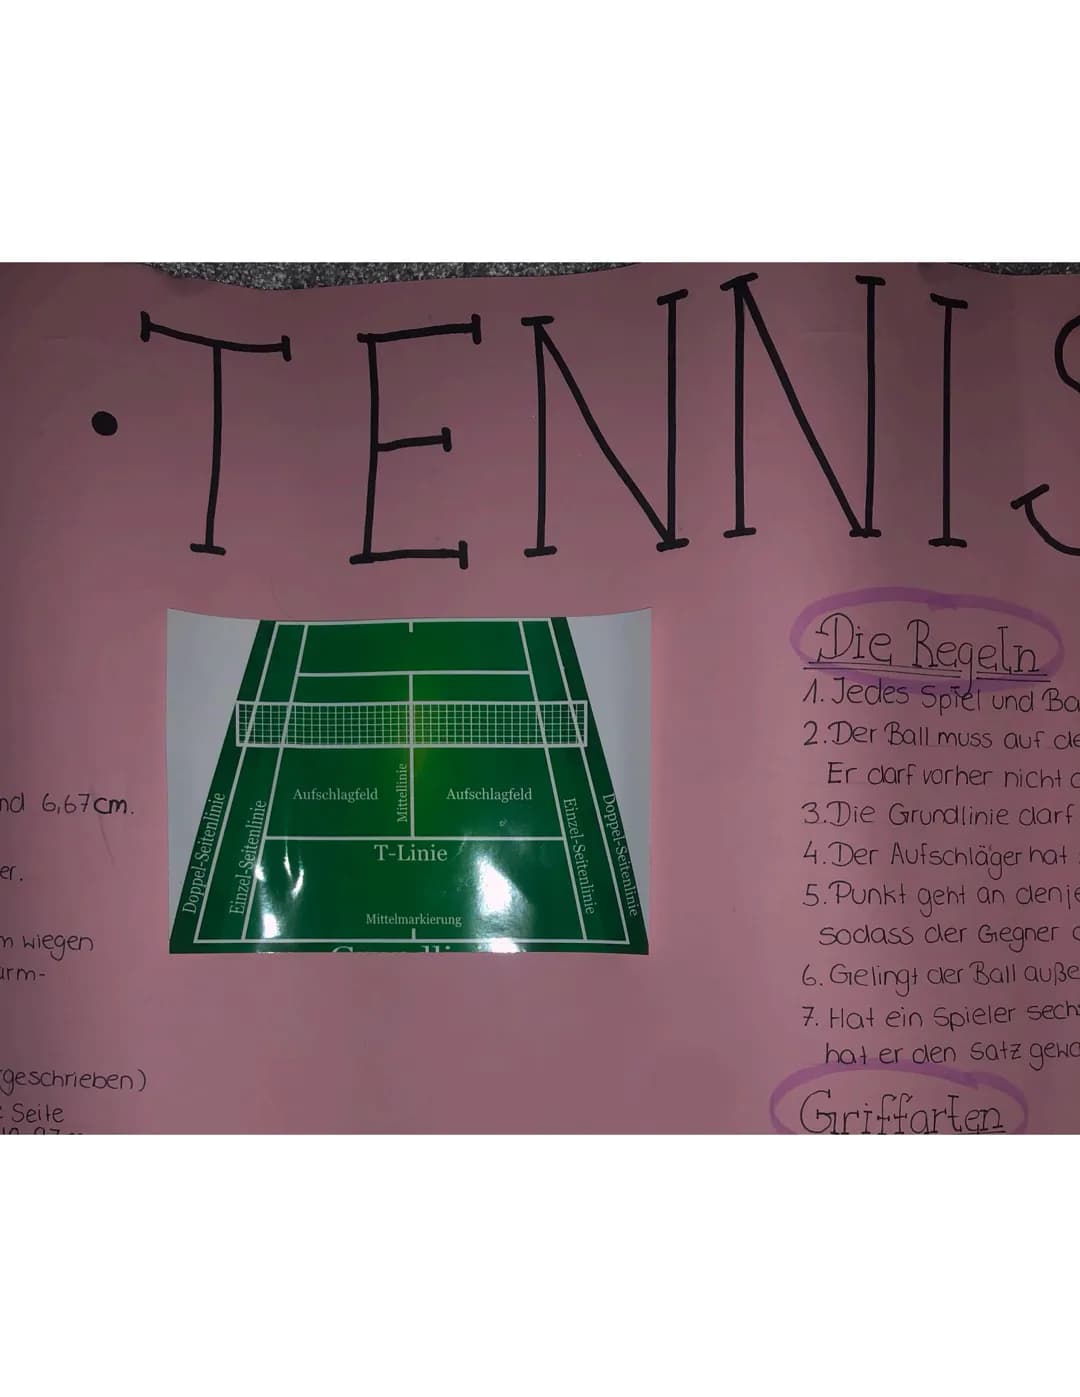 ·TENNIS
nd 6,67cm.
er.
wiegen
geschrieben)
Seite
Doppel-Seitenlinie
Einzel-Seitenlinie
Aufschlagfeld
Mittellinie
Aufschlagfeld
Einzel-Seitenlinie
Doppel-Seitenlinie
T-Linie
Mittelmarkierung
Die Regeln
1. Jedes Spiel und Ba
2. Der Ball muss auf de
Er darf vorher nicht
3. Die Grundlinie darf
4. Der Aufschläger hat
5. Punkt geht an denje
sodass der Gegner
6. Gelingt der Ball auße
7. Hat ein Spieler sechs
hat er den Satz gewo
Griffarten